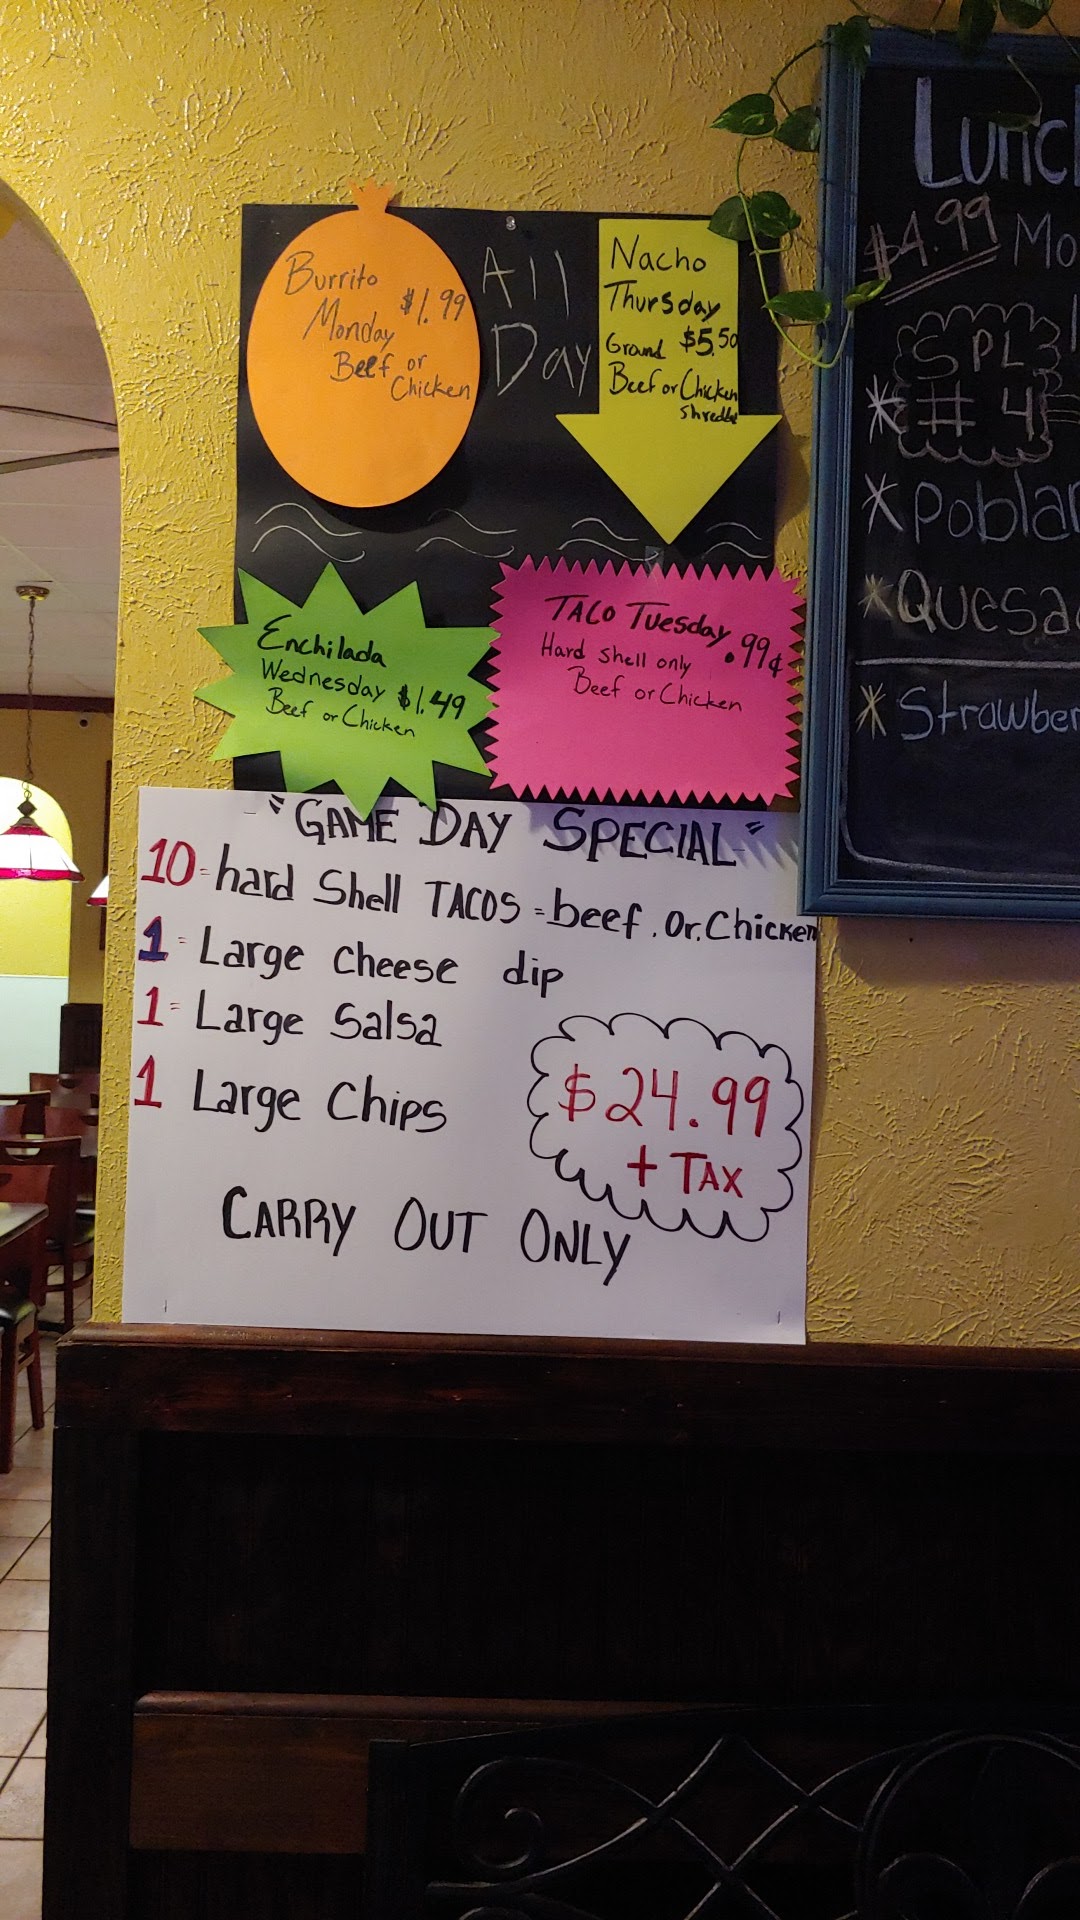 Burrito
Monday $1.99
Beef or
Chicken
All
Day
Nacho
Thursday
Ground $5.50
Beef or Chicken
shredded
Enchilada
Wednesday $1.49
Beef or Chicken
TACO Tuesday .99¢
Hard shell only
Beef or Chicken
"GAME DAY SPECIAL"
10 = hard Shell TACOS = beef . Or. Chicken
1 = Large cheese dip
1 = Large Salsa
1 Large Chips
$24.99
+ TAX
CARRY OUT ONLY
Lunc
$4.99 Mo
SPL
* # 4
* Poblan
* Quesad
* Strawber